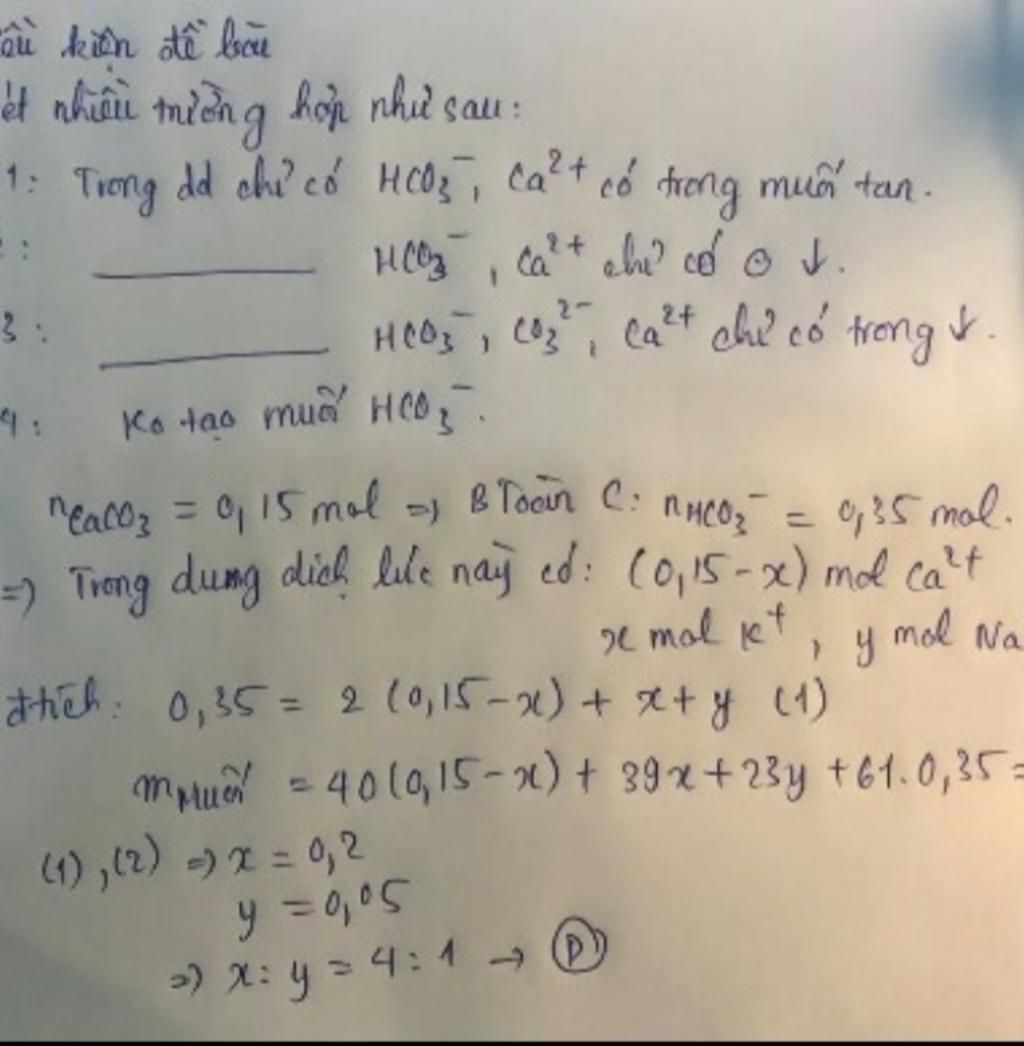 kiện đề bài
ét nhiều trường hợp như sau:
1: Trong dd chỉ có HCO₃⁻, Ca²⁺ có trong muối tan.
: ______ HCO₃⁻, Ca²⁺ chỉ có ở ↓.
3: ______ HCO₃⁻, CO₃²⁻, Ca²⁺ chỉ có trong ↓.
4: Ko tạo muối HCO₃⁻.
nCaCO₃ = 0,15 mol => BToàn C: nHCO₃⁻ = 0,35 mol.
=> Trong dung dịch lúc này có: (0,15-x) mol Ca²⁺
x mol K⁺, y mol Na
đtích: 0,35 = 2 (0,15-x) + x + y (1)
mMuối = 40(0,15-x) + 39x + 23y + 61.0,35 =
(1),(2) => x = 0,2
y = 0,05
=> x:y = 4:1 → D